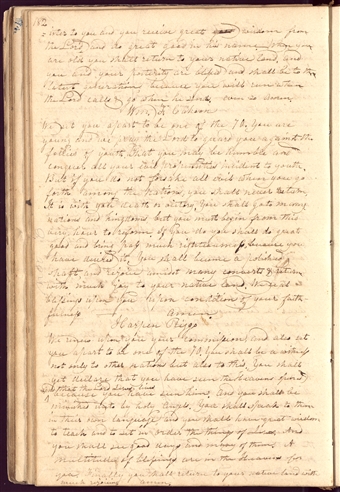 182
ister to you and you receive great wisdom from
the Lord, and do great good in his name. When you
are old you shall return to your native land, and
you and your posterity are blessed and shall be to the
latest generation because you will come when
the Lord calls & go when he sends even so amen.
Wm. F. Cahoon
We set you apart to be one of the 70. You are
young and we to guard you against the
follies of youth. That you may be humble and
conquer all your incident to youth.
But if you do not forsake all evil when you go
forth among the Nations, you shall never return.
It is with you death or victory. You shall go to many
nations and kingdoms but you must begin from this
very hour to reform. If you do you shall do great
good and bring pass much righteousness, because you
have desired it. You shall become a polished
shaft, and rejoice amidst many converts & return
with much joy to your native land. We seal
blessings upon you upon condition of your faith
fulness. Amen.
Harpen Riggs
We renew upon you your commission, and also set
you apart to be one of the 70. You shall be a witness
not only to other nations but also to this. You shall
yet declare that you have seen the heavens opened
& that the Lord lives
because you have seen him. And you shall be
ministered unto by holy angels. You shall speak to them
in their own language and you shall have great wisdom
to teach and to set in order the things of And
you shall see good days and many of them. A
multiplicity of blessings are in the heavens for
you. Finally you shall return to your native land with
much rejoicing amen.